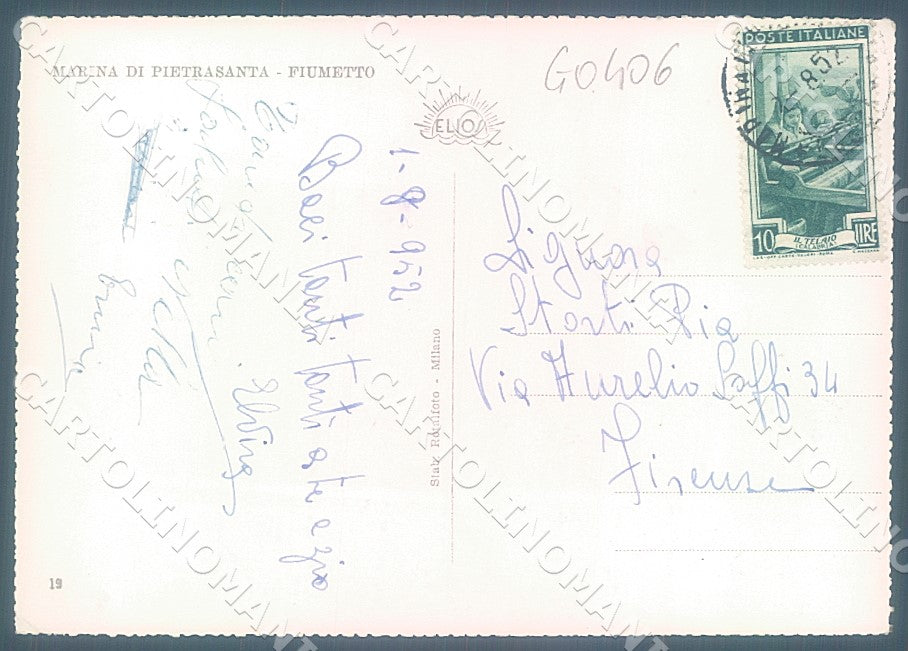 MARINA DI PIETRASANTA - FIUMETTO
G0406
ELIO
POSTE ITALIANE
8.52
10 IL TELAIO LIRE
(CALABRIA)
1-8-952
Baci tanti tanti a te e zio
Elvira
Stab. Rotalfoto - Milano
Signora
Storti Pia
Via Aurelio Saffi 34
Firenze
19
CARTOLINOMANIA